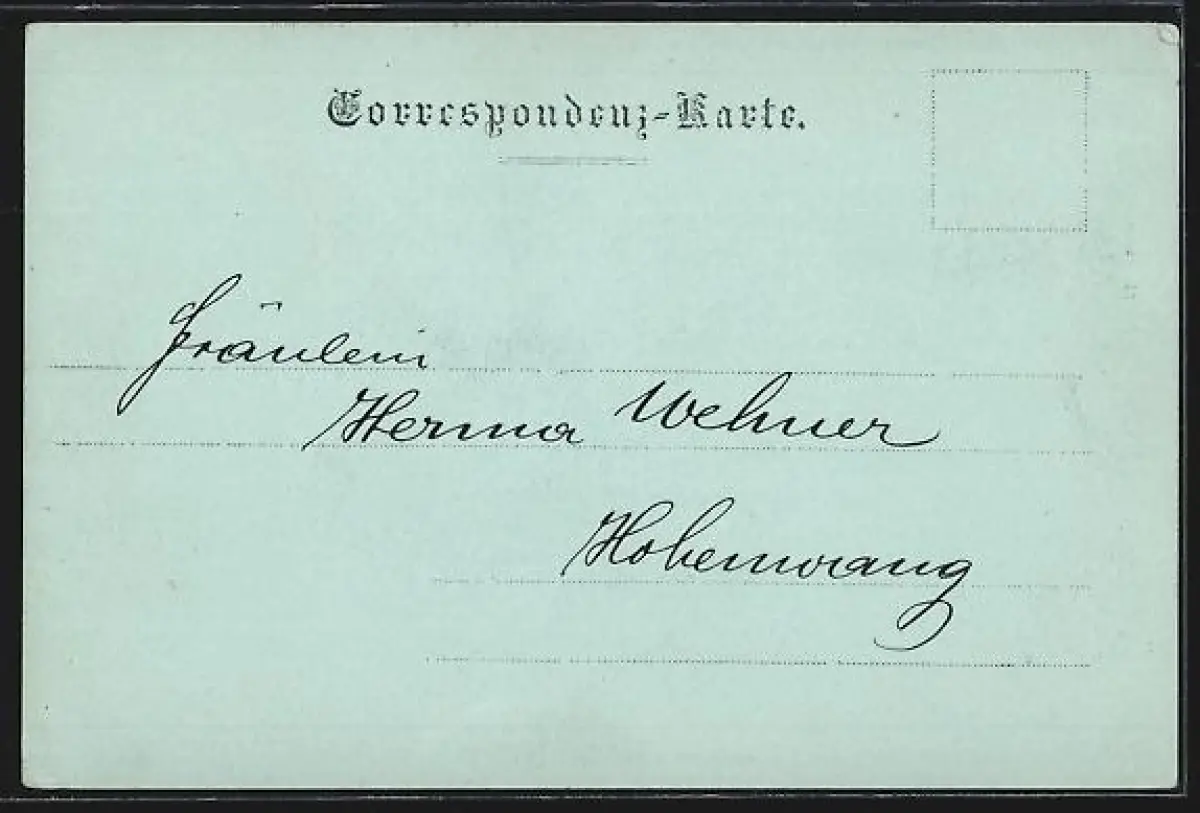 Correspondenz-Karte.
Fräulein
Herma Wehner
Hohenwang